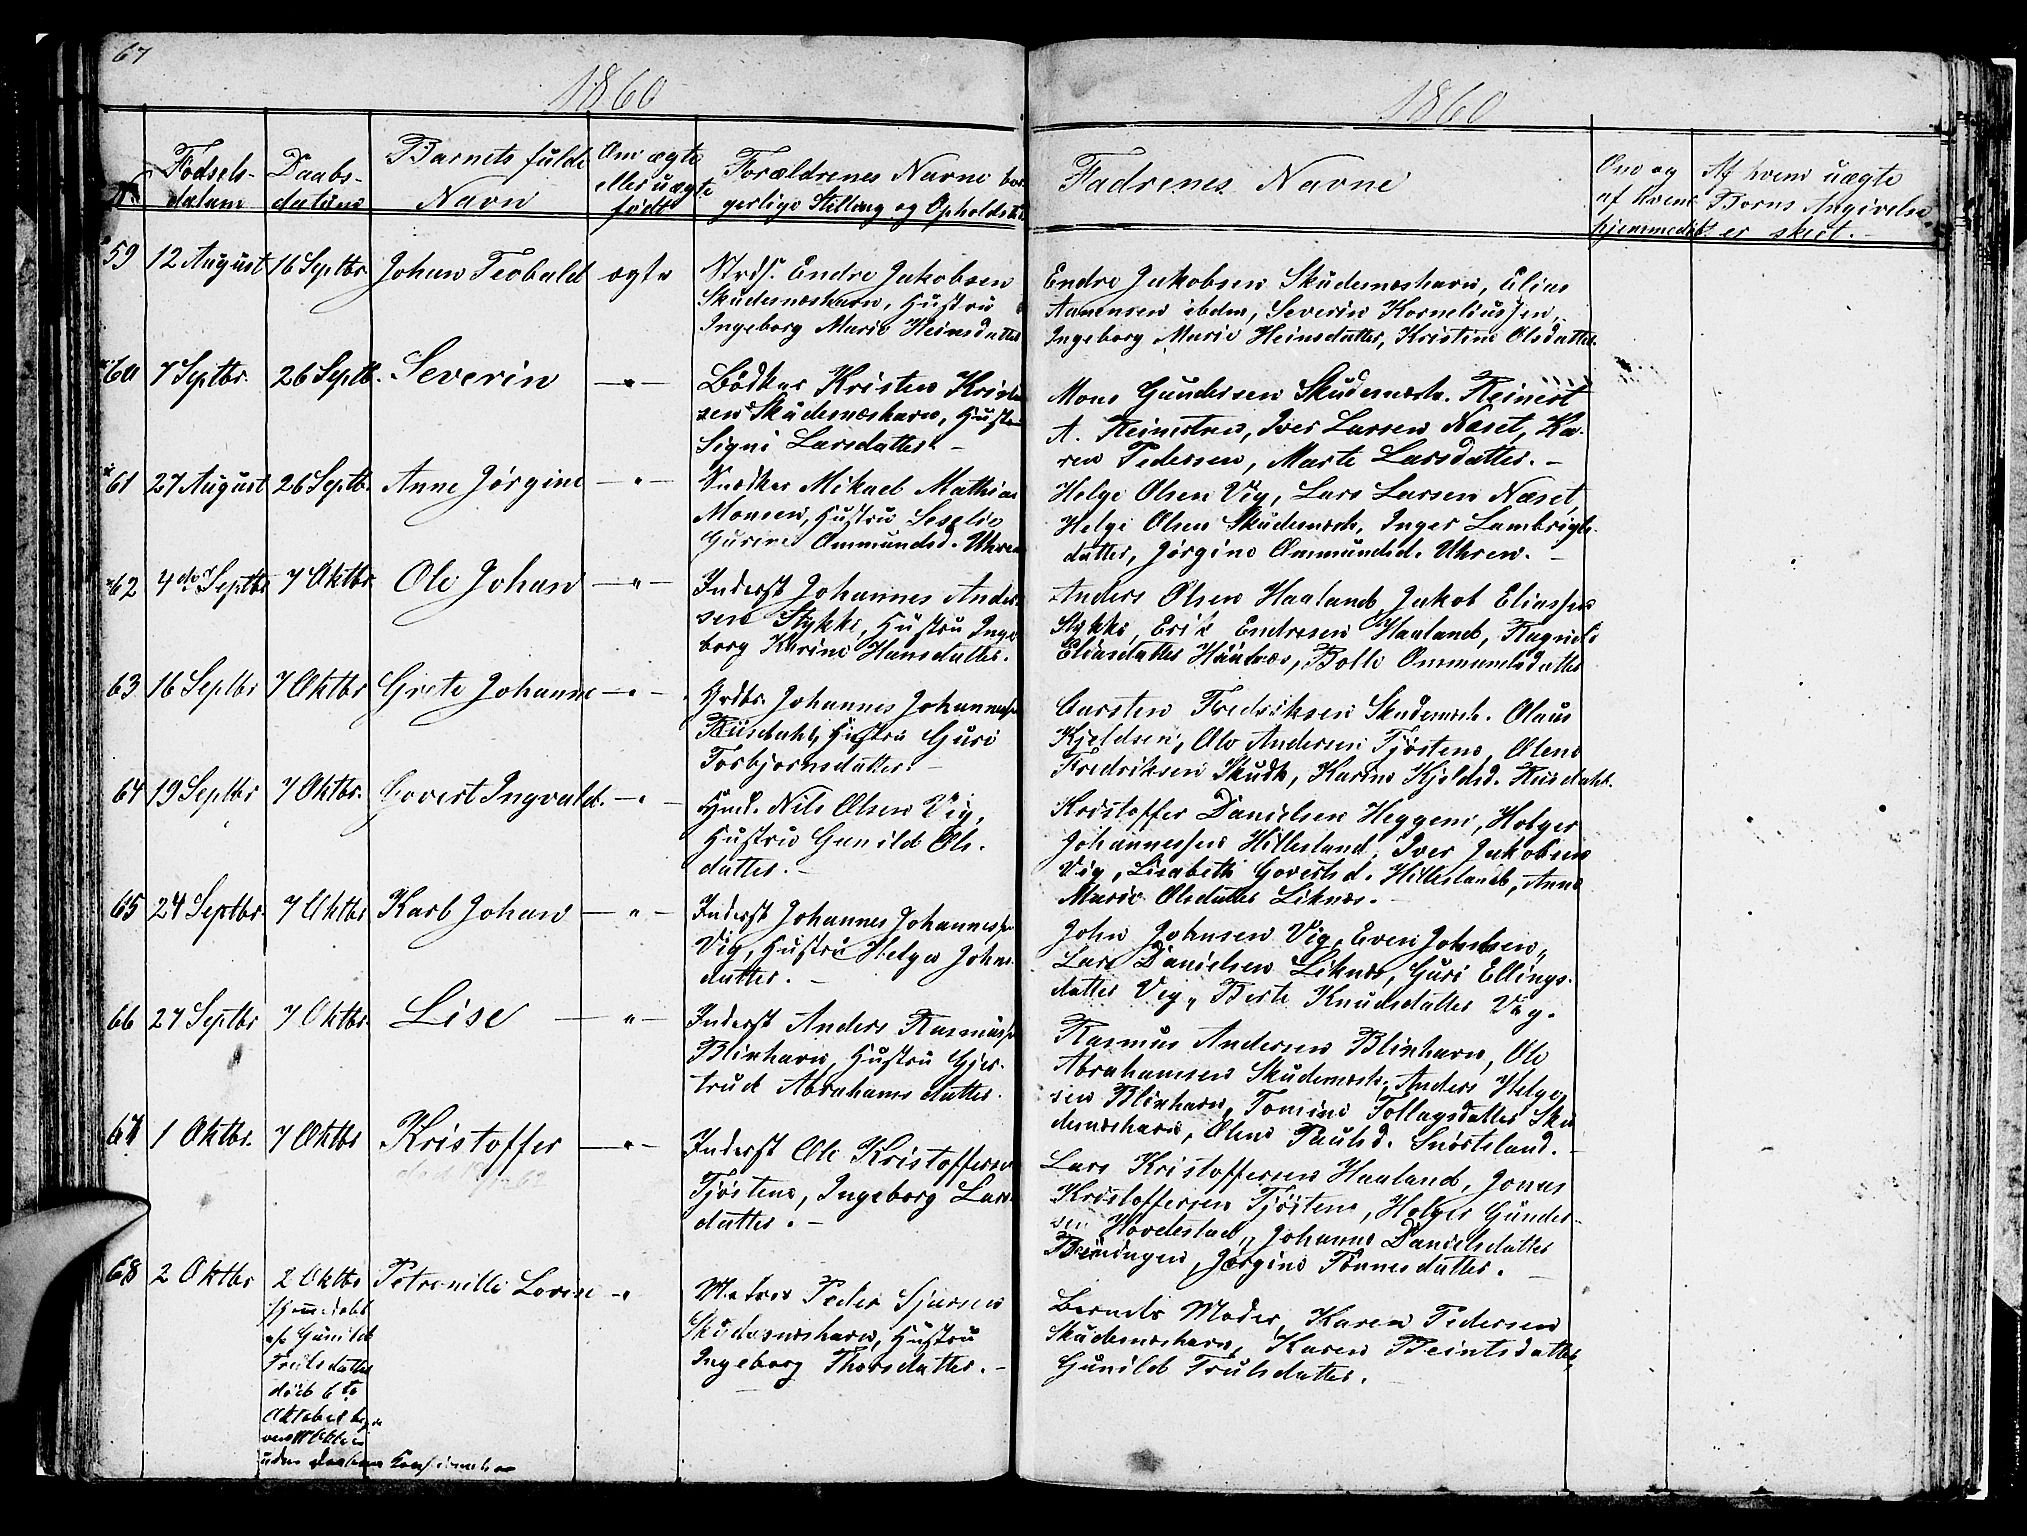 67
1860
1860
No
Fødsels-
datum
Daabs-
datum
Barnets fulde
Navn
Om ægte
eller uægte
født
Forældrenes Navne bor
gerlige Stilling og Opholdst
Fadrenes Navne
Om og
af hvem
hjemmedøbt
Af hvem uægte
Børns Angivelse
er skeet.
59 12 August 16 Septbr. Johan Teobald ægte
Endre Jakobsen
Skudesneshavn, Hustru
Ingeborg Marie Heinsdatter
Endre Jakobsen Skudesneshavn, Elias
Aanensen ibdm, Severin Korneliussen,
Ingeborg Marie Heinsdatter, Kristine Olsdatter
60 7 Septbr. 26 Septb. Severin — " —
Bødker Kristen Kristen
sen Skudesneshavn, Hustru
Signi Larsdatter. -
Mons Gundersen Skudesnesh. Reinert
A. Reinertsen, Iver Larsen Næset, Ka-
ren Pedersen, Marte Larsdatter. -
61 27 August 26 Septb. Anne Jørgine — " —
Snedker Mikael Mathias
Monsen, Hustru Seselie
Gurine Ommundsd. Uhren
Helge Olsen Vig, Lars Larsen Næset,
Helge Olsen Skudesnesh, Inger Lambrigts
datter, Jørgine Ommundsd. Uhren. -
62 4de Septbr 7 Oktbr. Ole Johan — " —
Inderst Johannes Ander-
sen Stykke, Hustru Inge-
borg Karine Hansdatter.
Anders Olsen Haaland, Jakob Eliassen
Stykke, Erik Endresen Haaland, Ragnild
Eliasdatter, Bolle Ommundsdatter
63 16 Septbr 7 Oktbr Grete Johanne — " —
Grdbr. Johannes Johannessen
Riisdahl, Hustru Guri
Torbjørnsdatter. -
Carsten Fredriksen Skudesnesh. Olaus
Kjeldsen, Ole Andersen Tjøsteno, Olene
Fredriksen Skudh, Karine Kjeldsd. Riisdahl.
64 19 Septbr 7 Oktbr. Govert Ingvald. — " —
Hmd. Nils Olsen Vig,
Hustru Gunild Ols-
datter. -
Kristoffer Danielsen Heggem, Holger
Johannessen Hillesland, Iver Jakobsen
Vig, Lisabeth Govertsd. Hillesland, Anne
Marie Olsdatter Liknes. -
65 24 Septbr. 7 Oktbr Karl Johan — " —
Inderst Johannes Johannessen
Vig, Hustru Helga Johns
datter. -
John Johnsen Vig, Even Johnsen,,
Lars Danielsen Liknes, Guri Ellings-
datter Vig, Berte Knudsdatter Vig.
66 27 Septbr 7 Oktbr. Lise — " —
Inderst Anders Rasmussen
Blixhavn, Hustru Gjer-
trud Abrahamsdatter.
Rasmus Andersen Blixhavn, Ole
Abrahamsen Skudesnesh, Anders Helge-
sen Blixhavn, Tomine Tollagsdatter Sku
desneshavn, Olene Paulsd. Snørtsland.
67 1 Oktbr. 7 Oktbr Kristoffer — " —
Inderst Ole Kristoffersen
Tjøsteno, Ingeborg Lars-
datter. -
Lars Kristoffersen Haaland, Jonas
Kristoffersen Tjøsteno, Holger Gunder-
sen Hovdestad, Johanne Danielsdatter
Jørgine Tønnesdatter. -
68 2 Oktbr 2 Oktbr Petronille Lovise "
hjemmedøbt
af Gunild
Trulsdatter
død 6te
Oktober
uden
Matros Peder Sjursen
Skudesneshavn, Hustru
Ingeborg Thorsdatter. -
Barnets Moder, Karen Pedersen
Skudesneshavn, Karen Beintsdatter
Gunild Trulsdatter.